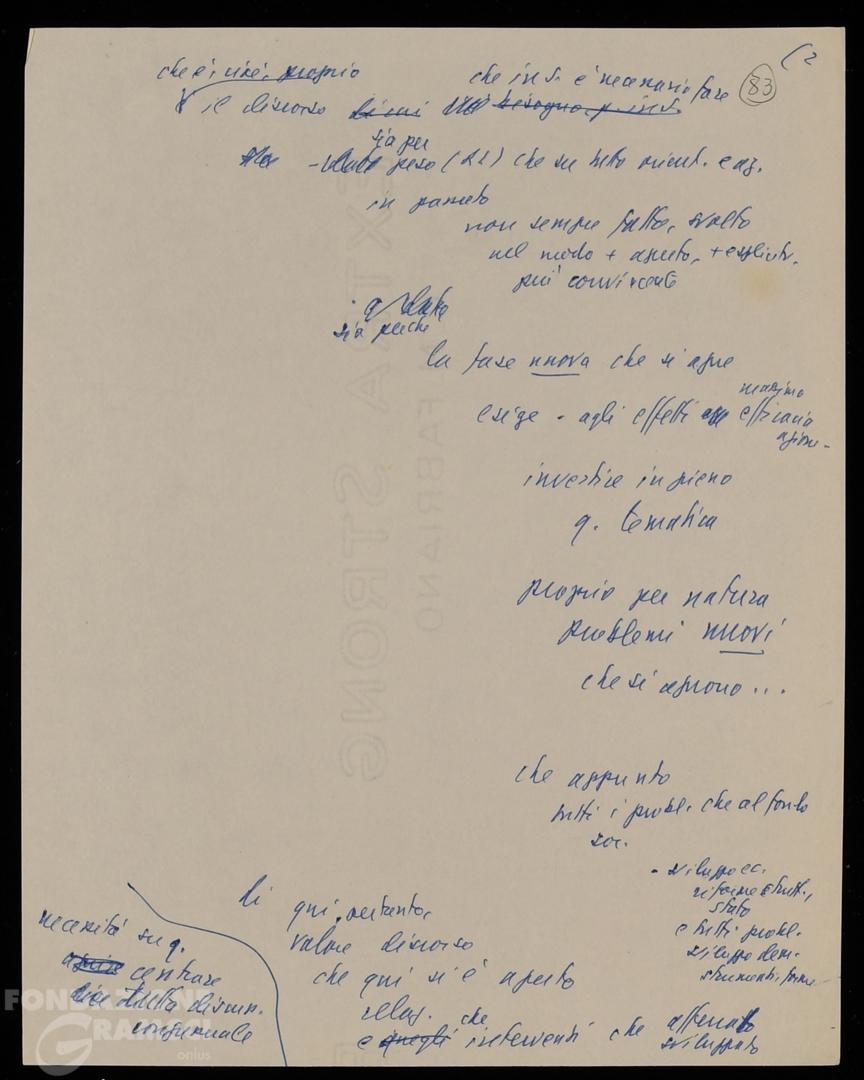 (2
83
che è, cioè, proprio
che in s. è necessario fare
il discorso di cui bisogno p. in s.
sia per
peso (RI) che su tutto orient. e az.
in passato
non sempre fatto, svolto
nel modo + aperto, + esplicito,
più convincente
sia perché
la fase nuova che si apre
esige - agli effetti massima
efficacia
azione -
investire in pieno
q. tematica
proprio per natura
problemi nuovi
che si aprono ...
che appunto
tutti i probl. che al fondo
son.
- sviluppo ec.
riforme strutt.,
stato
e tutti probl.
sviluppo dem.
strumenti, forme
di qui, pertanto,
valore discorso
che qui si è aperto
relaz. che
e quegli interventi che
sviluppato
necessità su q.
aprire centrare
tutta discuss.
congressuale
EXTRA STRONG
FABRIANO
FONDAZIONE
GRAMSCI
onlus